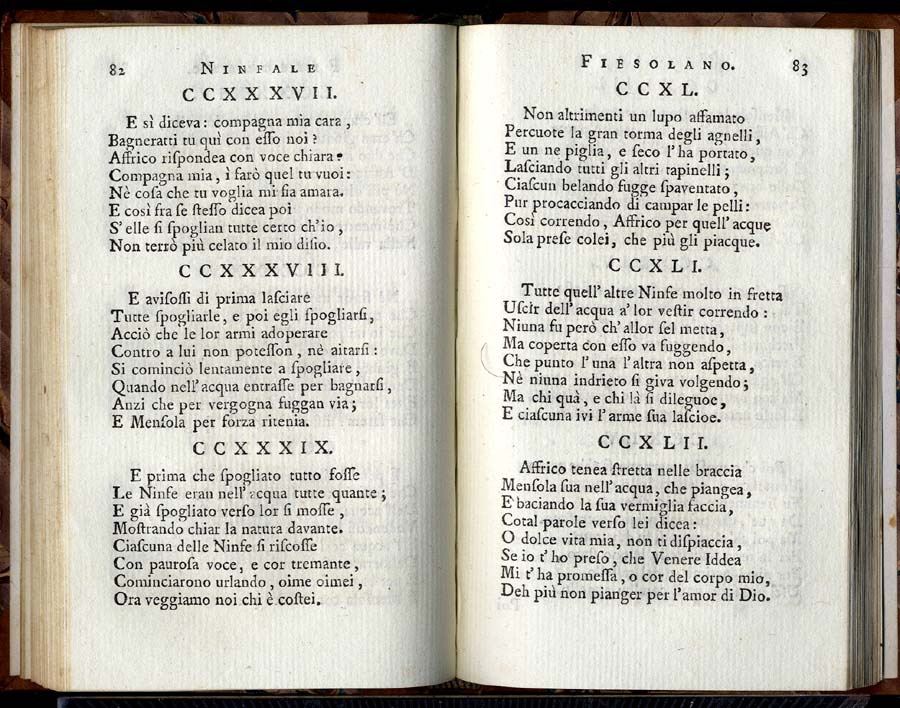 82 NINFALE
CCXXXVII.
E sì diceva: compagna mia cara,
Bagneratti tu quì con eſſo noi?
Affrico riſpondea con voce chiara:
Compagna mia, ì farò quel tu vuoi:
Nè coſa che tu voglia mi ſia amara.
E così fra ſe ſteſſo dicea poi
S' elle ſi ſpoglian tutte certo ch'io,
Non terrò più celato il mio diſio.
CCXXXVIII.
E aviſoſſi di prima laſciare
Tutte ſpogliarle, e poi egli ſpogliarſi,
Acciò che le lor armi adoperare
Contro a lui non poteſſon, nè aitarſi:
Si cominciò lentamente a ſpogliare,
Quando nell'acqua entraſſe per bagnarſi,
Anzi che per vergogna fuggan via;
E Menſola per forza ritenia.
CCXXXIX.
E prima che ſpogliato tutto foſſe
Le Ninfe eran nell'acqua tutte quante;
E già ſpogliato verſo lor ſi moſſe,
Moſtrando chiar la natura davante.
Ciaſcuna delle Ninfe ſi riſcoſſe
Con pauroſa voce, e cor tremante,
Cominciarono urlando, oime oimei,
Ora veggiamo noi chi è coſtei.
FIESOLANO. 83
CCXL.
Non altrimenti un lupo affamato
Percuote la gran torma degli agnelli,
E un ne piglia, e ſeco l'ha portato,
Laſciando tutti gli altri tapinelli;
Ciaſcun belando fugge ſpaventato,
Pur procacciando di campar le pelli:
Così correndo, Affrico per quell'acque
Sola preſe colei, che più gli piacque.
CCXLI.
Tutte quell'altre Ninfe molto in fretta
Uſcir dell'acqua a' lor veſtir correndo:
Niuna fu però ch'allor ſel metta,
Ma coperta con eſſo va fuggendo,
Che punto l'una l'altra non aſpetta,
Nè niuna indrieto ſi giva volgendo;
Ma chi quà, e chi là ſi dileguoe,
E ciaſcuna ivi l'arme ſua laſcioe.
CCXLII.
Affrico tenea ſtretta nelle braccia
Menſola ſua nell'acqua, che piangea,
E baciando la ſua vermiglia faccia,
Cotal parole verſo lei dicea:
O dolce vita mia, non ti diſpiaccia,
Se io t'ho preſo, che Venere Iddea
Mi t'ha promeſſa, o cor del corpo mio,
Deh più non pianger per l'amor di Dio.